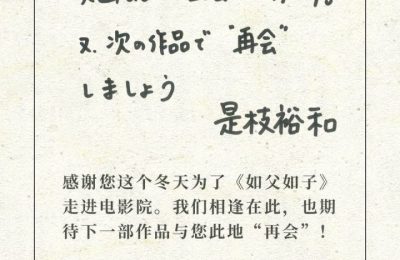 又、次の作品で“再会”
しましょう
是枝裕和
感谢您这个冬天为了《如父如子》
走进电影院。我们相逢在此，也期
待下一部作品与您此地“再会”！